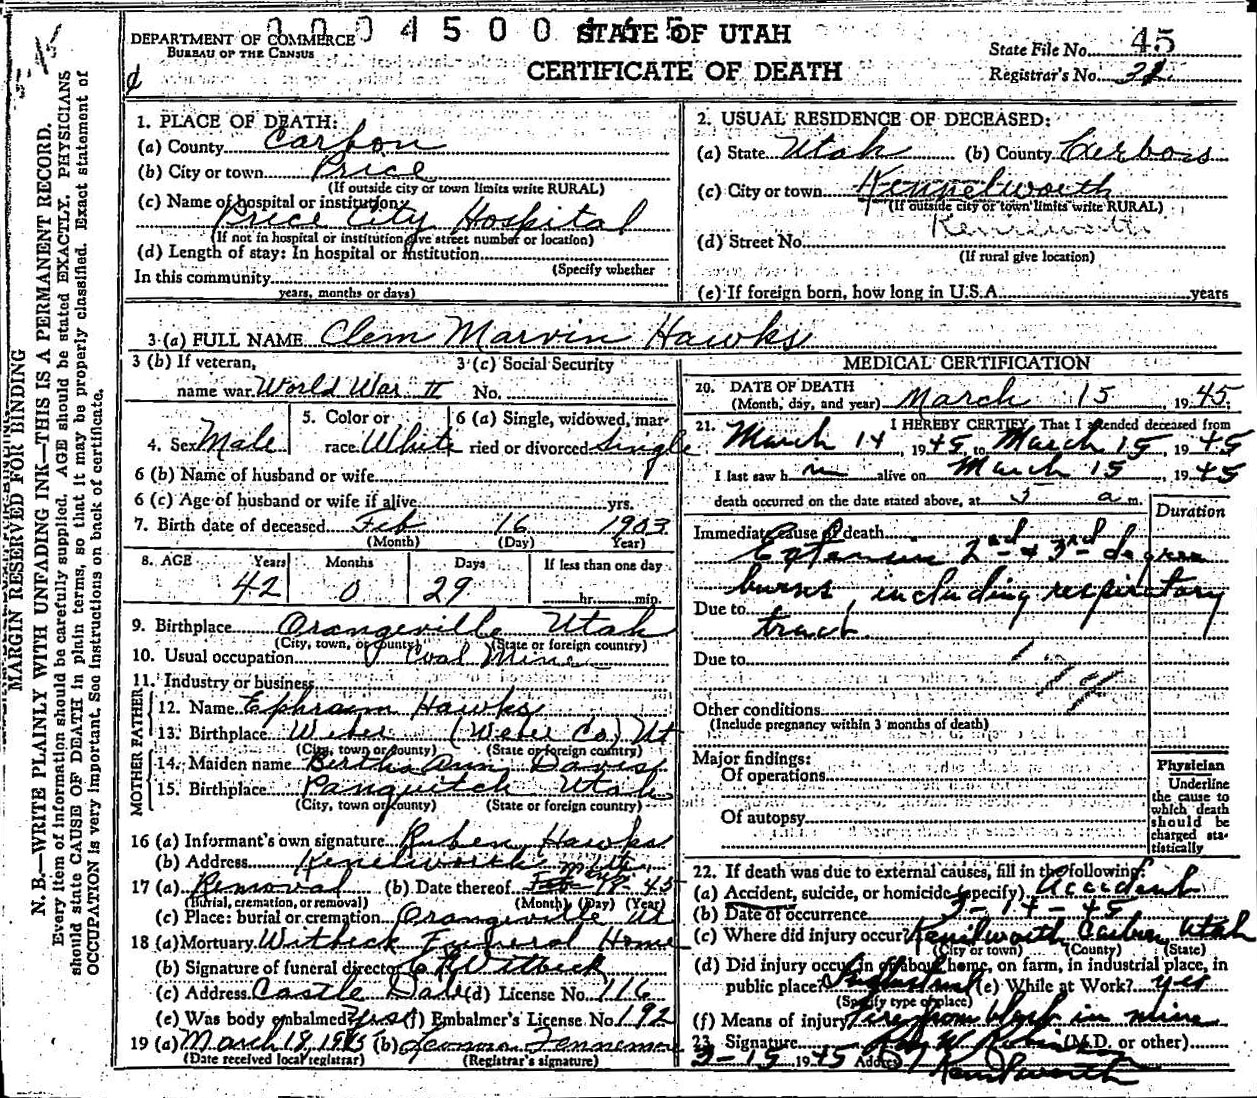 0004500465
DEPARTMENT OF COMMERCE
BUREAU OF THE CENSUS
STATE OF UTAH
CERTIFICATE OF DEATH
State File No. 45
Registrar's No. 31
MARGIN RESERVED FOR BINDING
N. B.—WRITE PLAINLY WITH UNFADING INK—THIS IS A PERMANENT RECORD.
Every item of information should be carefully supplied. AGE should be stated EXACTLY. PHYSICIANS
should state CAUSE OF DEATH in plain terms, so that it may be properly classified. Exact statement of
OCCUPATION is very important. See instructions on back of certificate.
1. PLACE OF DEATH:
(a) County Carbon
(b) City or town Price
(If outside city or town limits write RURAL)
(c) Name of hospital or institution:
Price City Hospital
(If not in hospital or institution give street number or location)
(d) Length of stay: In hospital or institution
(Specify whether
In this community
years, months or days)
2. USUAL RESIDENCE OF DECEASED:
(a) State Utah (b) County Carbon
(c) City or town Kennelworth
(If outside city or town limits write RURAL)
Kenilworth
(d) Street No.
(If rural give location)
(e) If foreign born, how long in U.S.A. years
3 (a) FULL NAME Clem Marvin Hawks
3 (b) If veteran, name war World War II
3 (c) Social Security No.
4. Sex Male
5. Color or race White
6 (a) Single, widowed, married or divorced Single
6 (b) Name of husband or wife
6 (c) Age of husband or wife if alive yrs.
7. Birth date of deceased Feb 16 1903
(Month) (Day) Year)
8. AGE Years Months Days If less than one day
42 0 29 hr. min.
9. Birthplace Orangeville Utah
(City, town, or county) (State or foreign country)
10. Usual occupation Coal Miner
11. Industry or business
FATHER
12. Name Ephraim Hawks
13. Birthplace Weber (Weber Co.) Ut
(City, town or county) (State or foreign country)
MOTHER
14. Maiden name Bertha Ann Davis
15. Birthplace Panquitch Utah
(City, town or county) (State or foreign country)
16 (a) Informant's own signature Ruben Hawks
(b) Address Kenelworth Utah
17 (a) Removal (b) Date thereof Mch 18-45
(Burial, cremation, or removal) (Month) (Day) (Year)
(c) Place: burial or cremation Orangeville Ut
18 (a) Mortuary Witbeck Funeral Home
(b) Signature of funeral director Witbeck
(c) Address Castle Dale (d) License No. 116
(e) Was body embalmed? yes (f) Embalmer's License No. 192
19 (a) March 18, 1945 (b) Fennemore
(Date received local registrar) (Registrar's signature)
MEDICAL CERTIFICATION
20. DATE OF DEATH
(Month, day, and year) March 15, 1945.
21. I HEREBY CERTIFY, That I attended deceased from
March 14, 1945, to March 15, 1945
I last saw him alive on March 15, 1945
death occurred on the date stated above, at 5 a m.
Duration
Immediate cause of death
Extensive 2nd & 3rd degree
burns, including respiratory
Due to
tract.
Due to
Other conditions
(Include pregnancy within 3 months of death)
Major findings:
Of operations
Of autopsy
Physician
Underline
the cause to
which death
should be
charged sta-
tistically
22. If death was due to external causes, fill in the following:
(a) Accident, suicide, or homicide (specify) Accident
(b) Date of occurrence 3-14-45
(c) Where did injury occur? Kenilworth Carbon Utah
(City or town) (County) (State)
(d) Did injury occur in or about home, on farm, in industrial place, in
public place? Industrial (e) While at Work? yes
(Specify type of place)
(f) Means of injury Fire from blast in mine
23. Signature (M.D. or other)
3-15 1945 Address Kenilworth